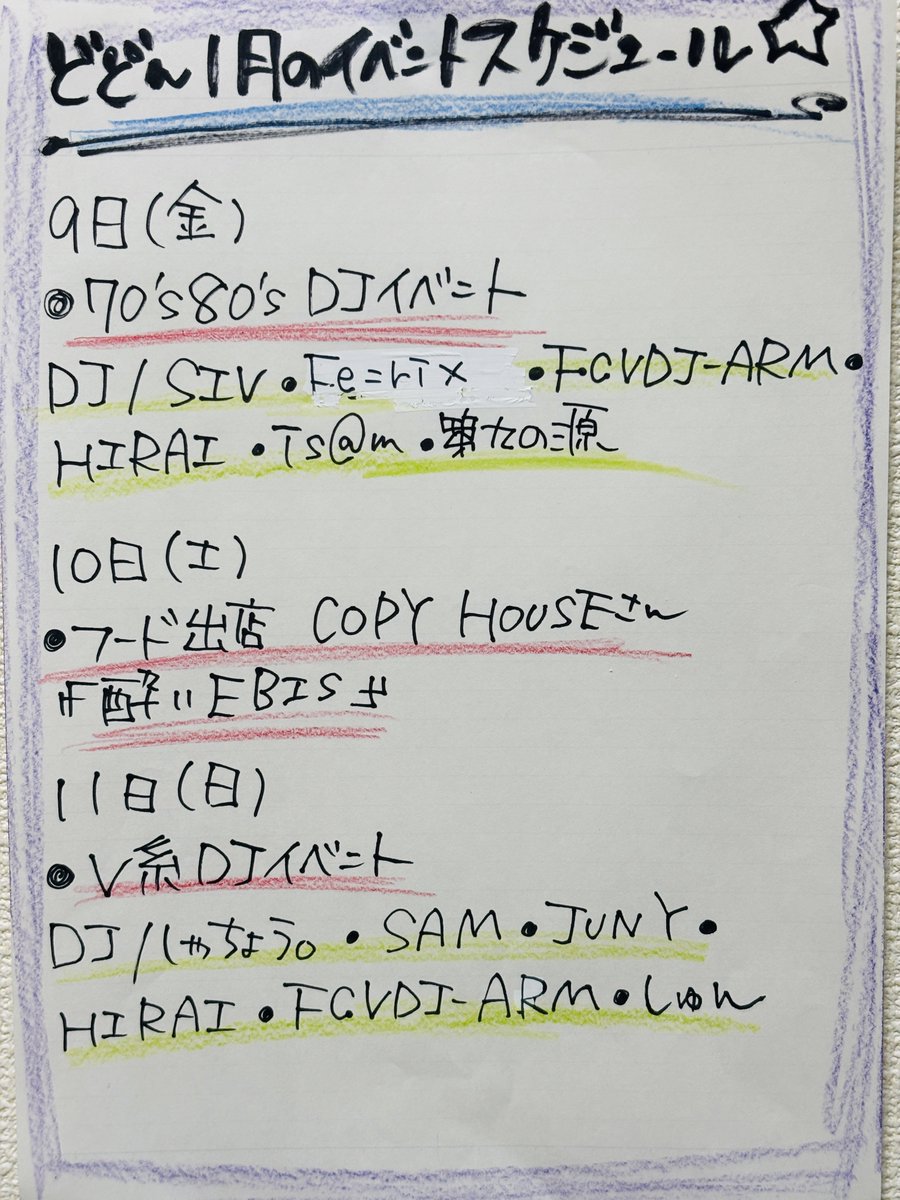 どどん1月のイベントスケジュール☆
9日(金)
◉70's80's DJイベント
DJ/SIV・Fe=rix・F.CVDJ-ARM・
HIRAI・Ts@m・の源
10日(土)
◉フード出店 COPY HOUSEさん
酔いEBIS
11日(日)
◉V系DJイベント
DJ/しゃちょう。・SAM・JUNY・
HIRAI・F.CVDJ-ARM・しゅん